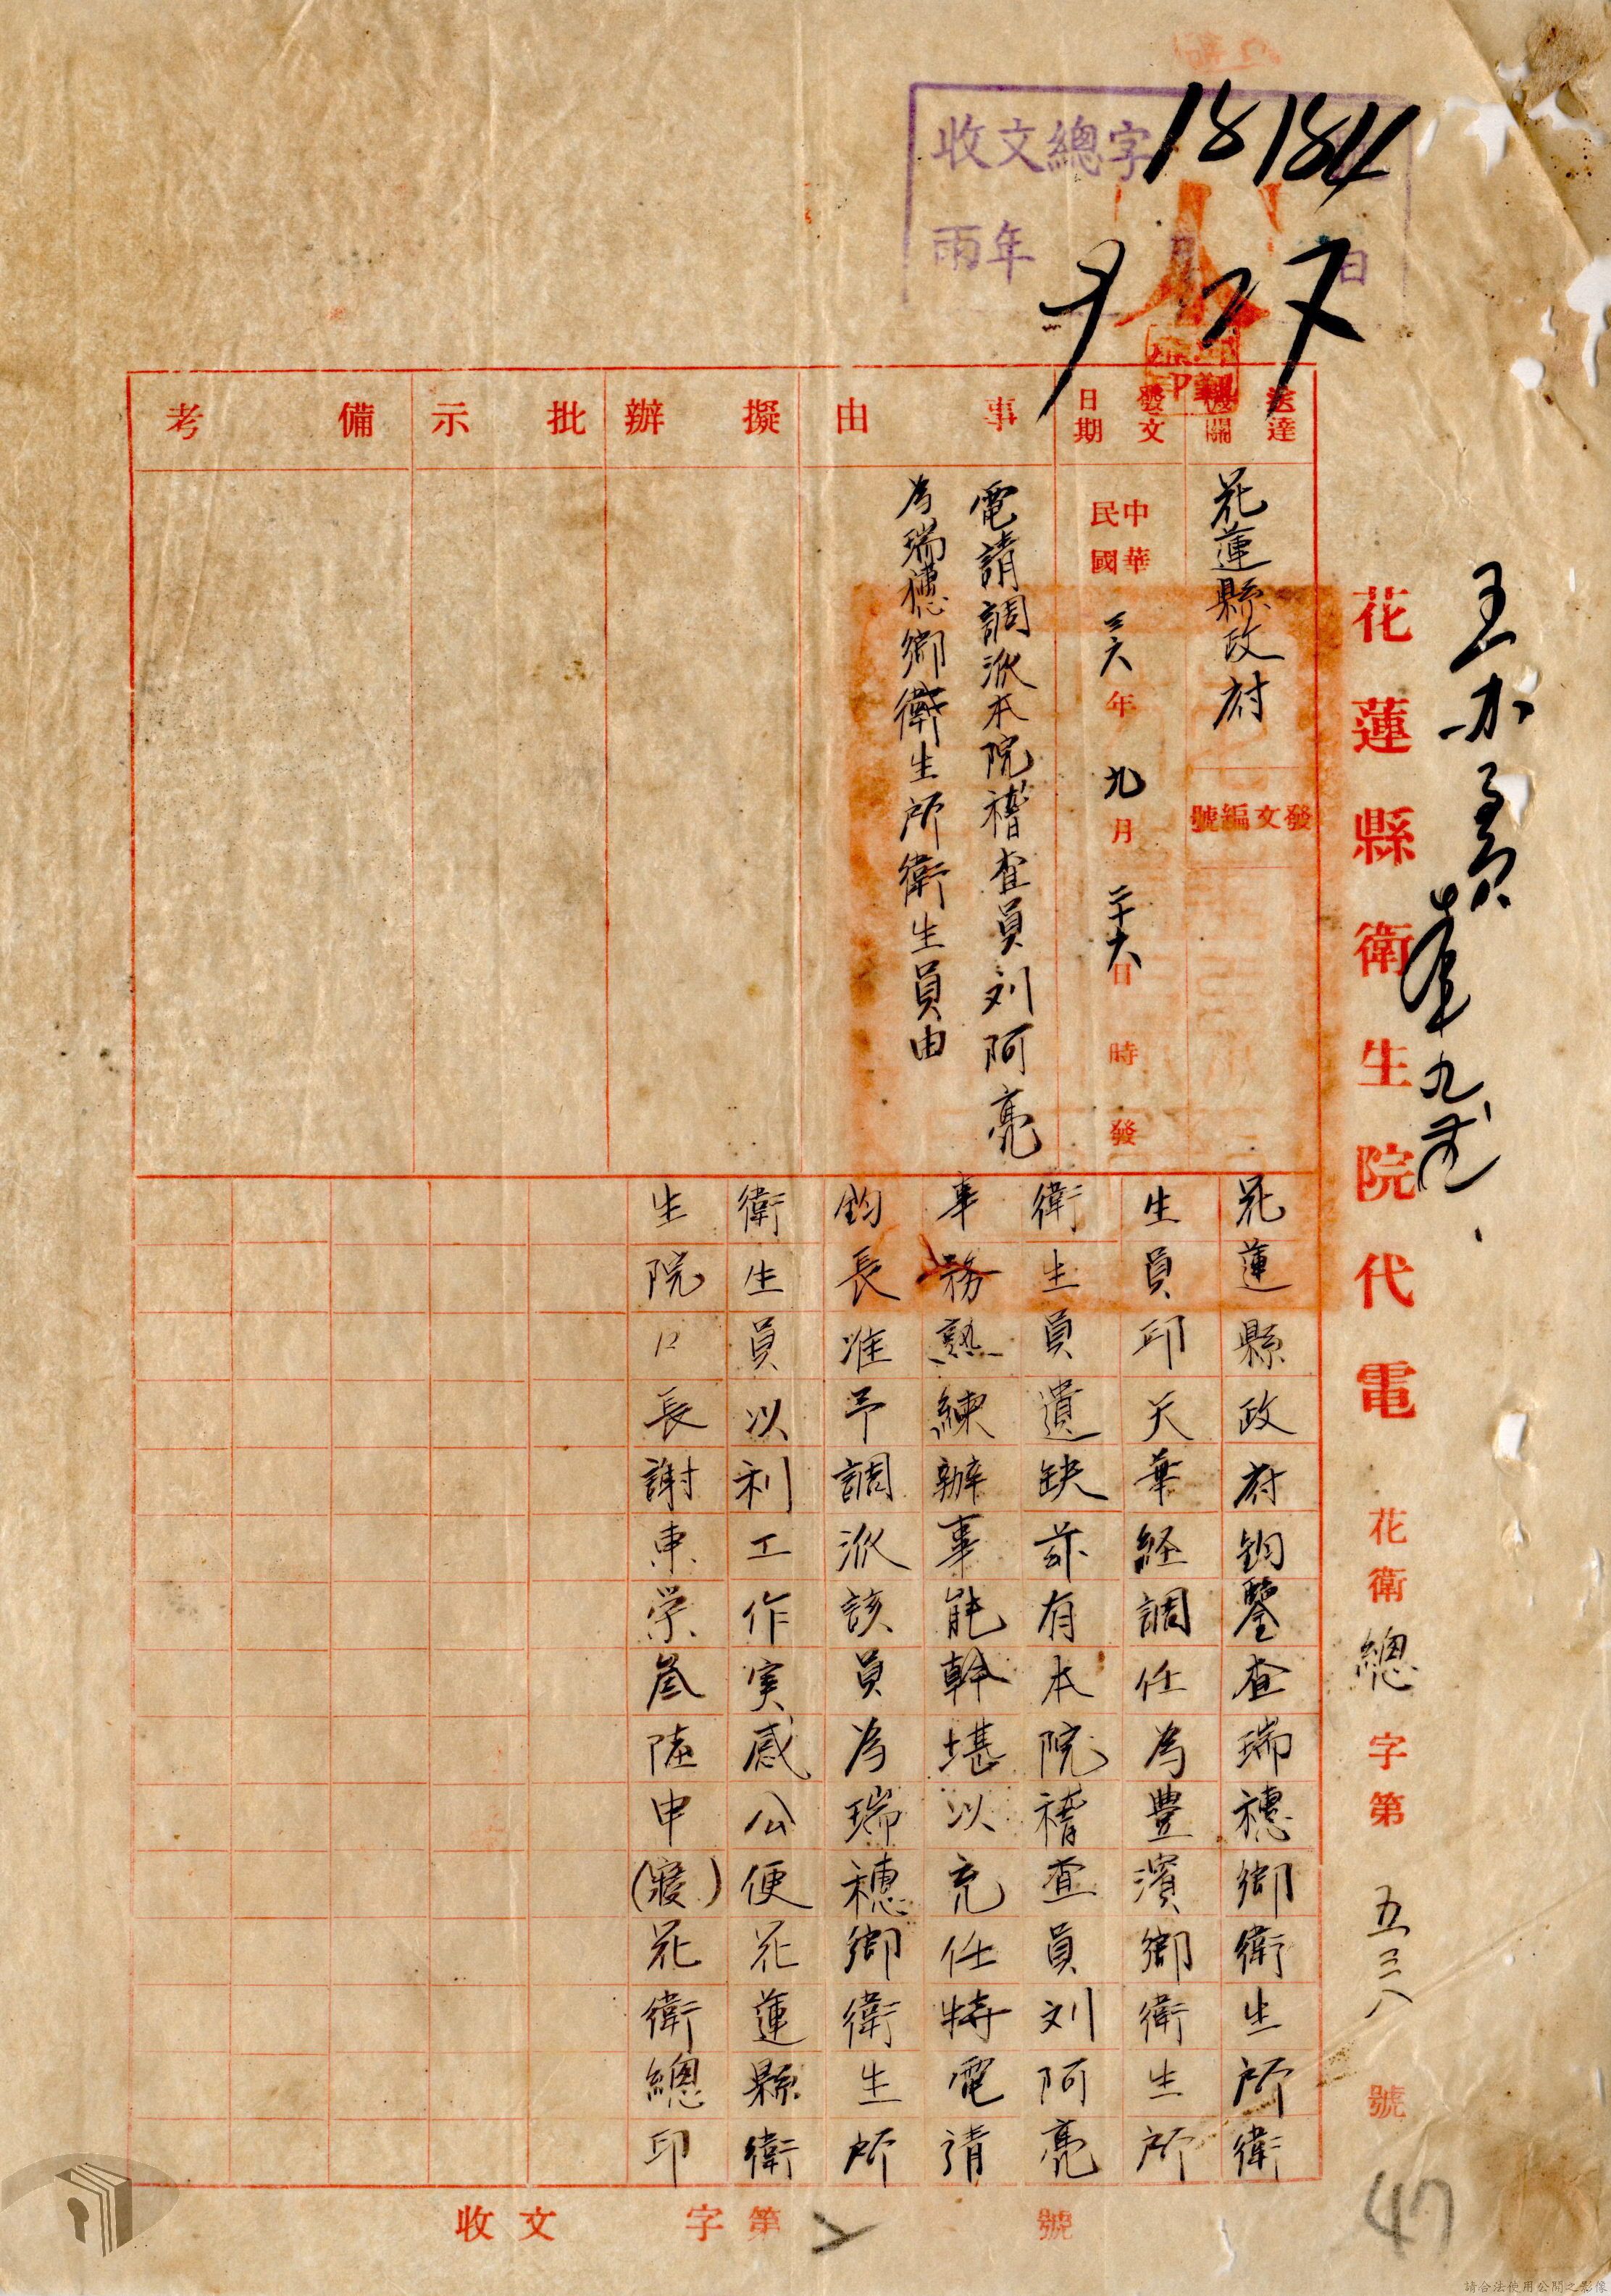 收文總字 18184
雨年 9 月 27 日
花蓮縣衛生院代電 花衛總字第五三八號
送達機關 花蓮縣政府
發文編號
發文日期 中華民國三六年九月二十六日 時發
事由
電請調派本院稽查員刘阿亮
為瑞穗鄉衛生所衛生員由
擬辦
批示
備考
花蓮縣政府鈞鑒查瑞穗鄉衛生所衛
生員邱天華経調任為豐濱鄉衛生所
衛生員遺缺茲有本院稽查員刘阿亮
事務熟練辦事能幹堪以充任特電請
鈞長准予調派該員為瑞穗鄉衛生所
衛生員以利工作実感公便花蓮縣衛
生院院長謝東学叁陸申(寢)花衛總印
收文 字第 號
47
請合法使用公開之影像